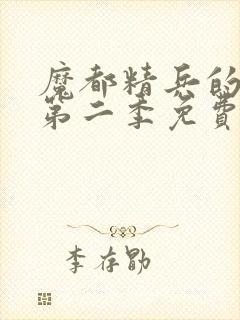 魔都精兵的
第二季免費
李存勖